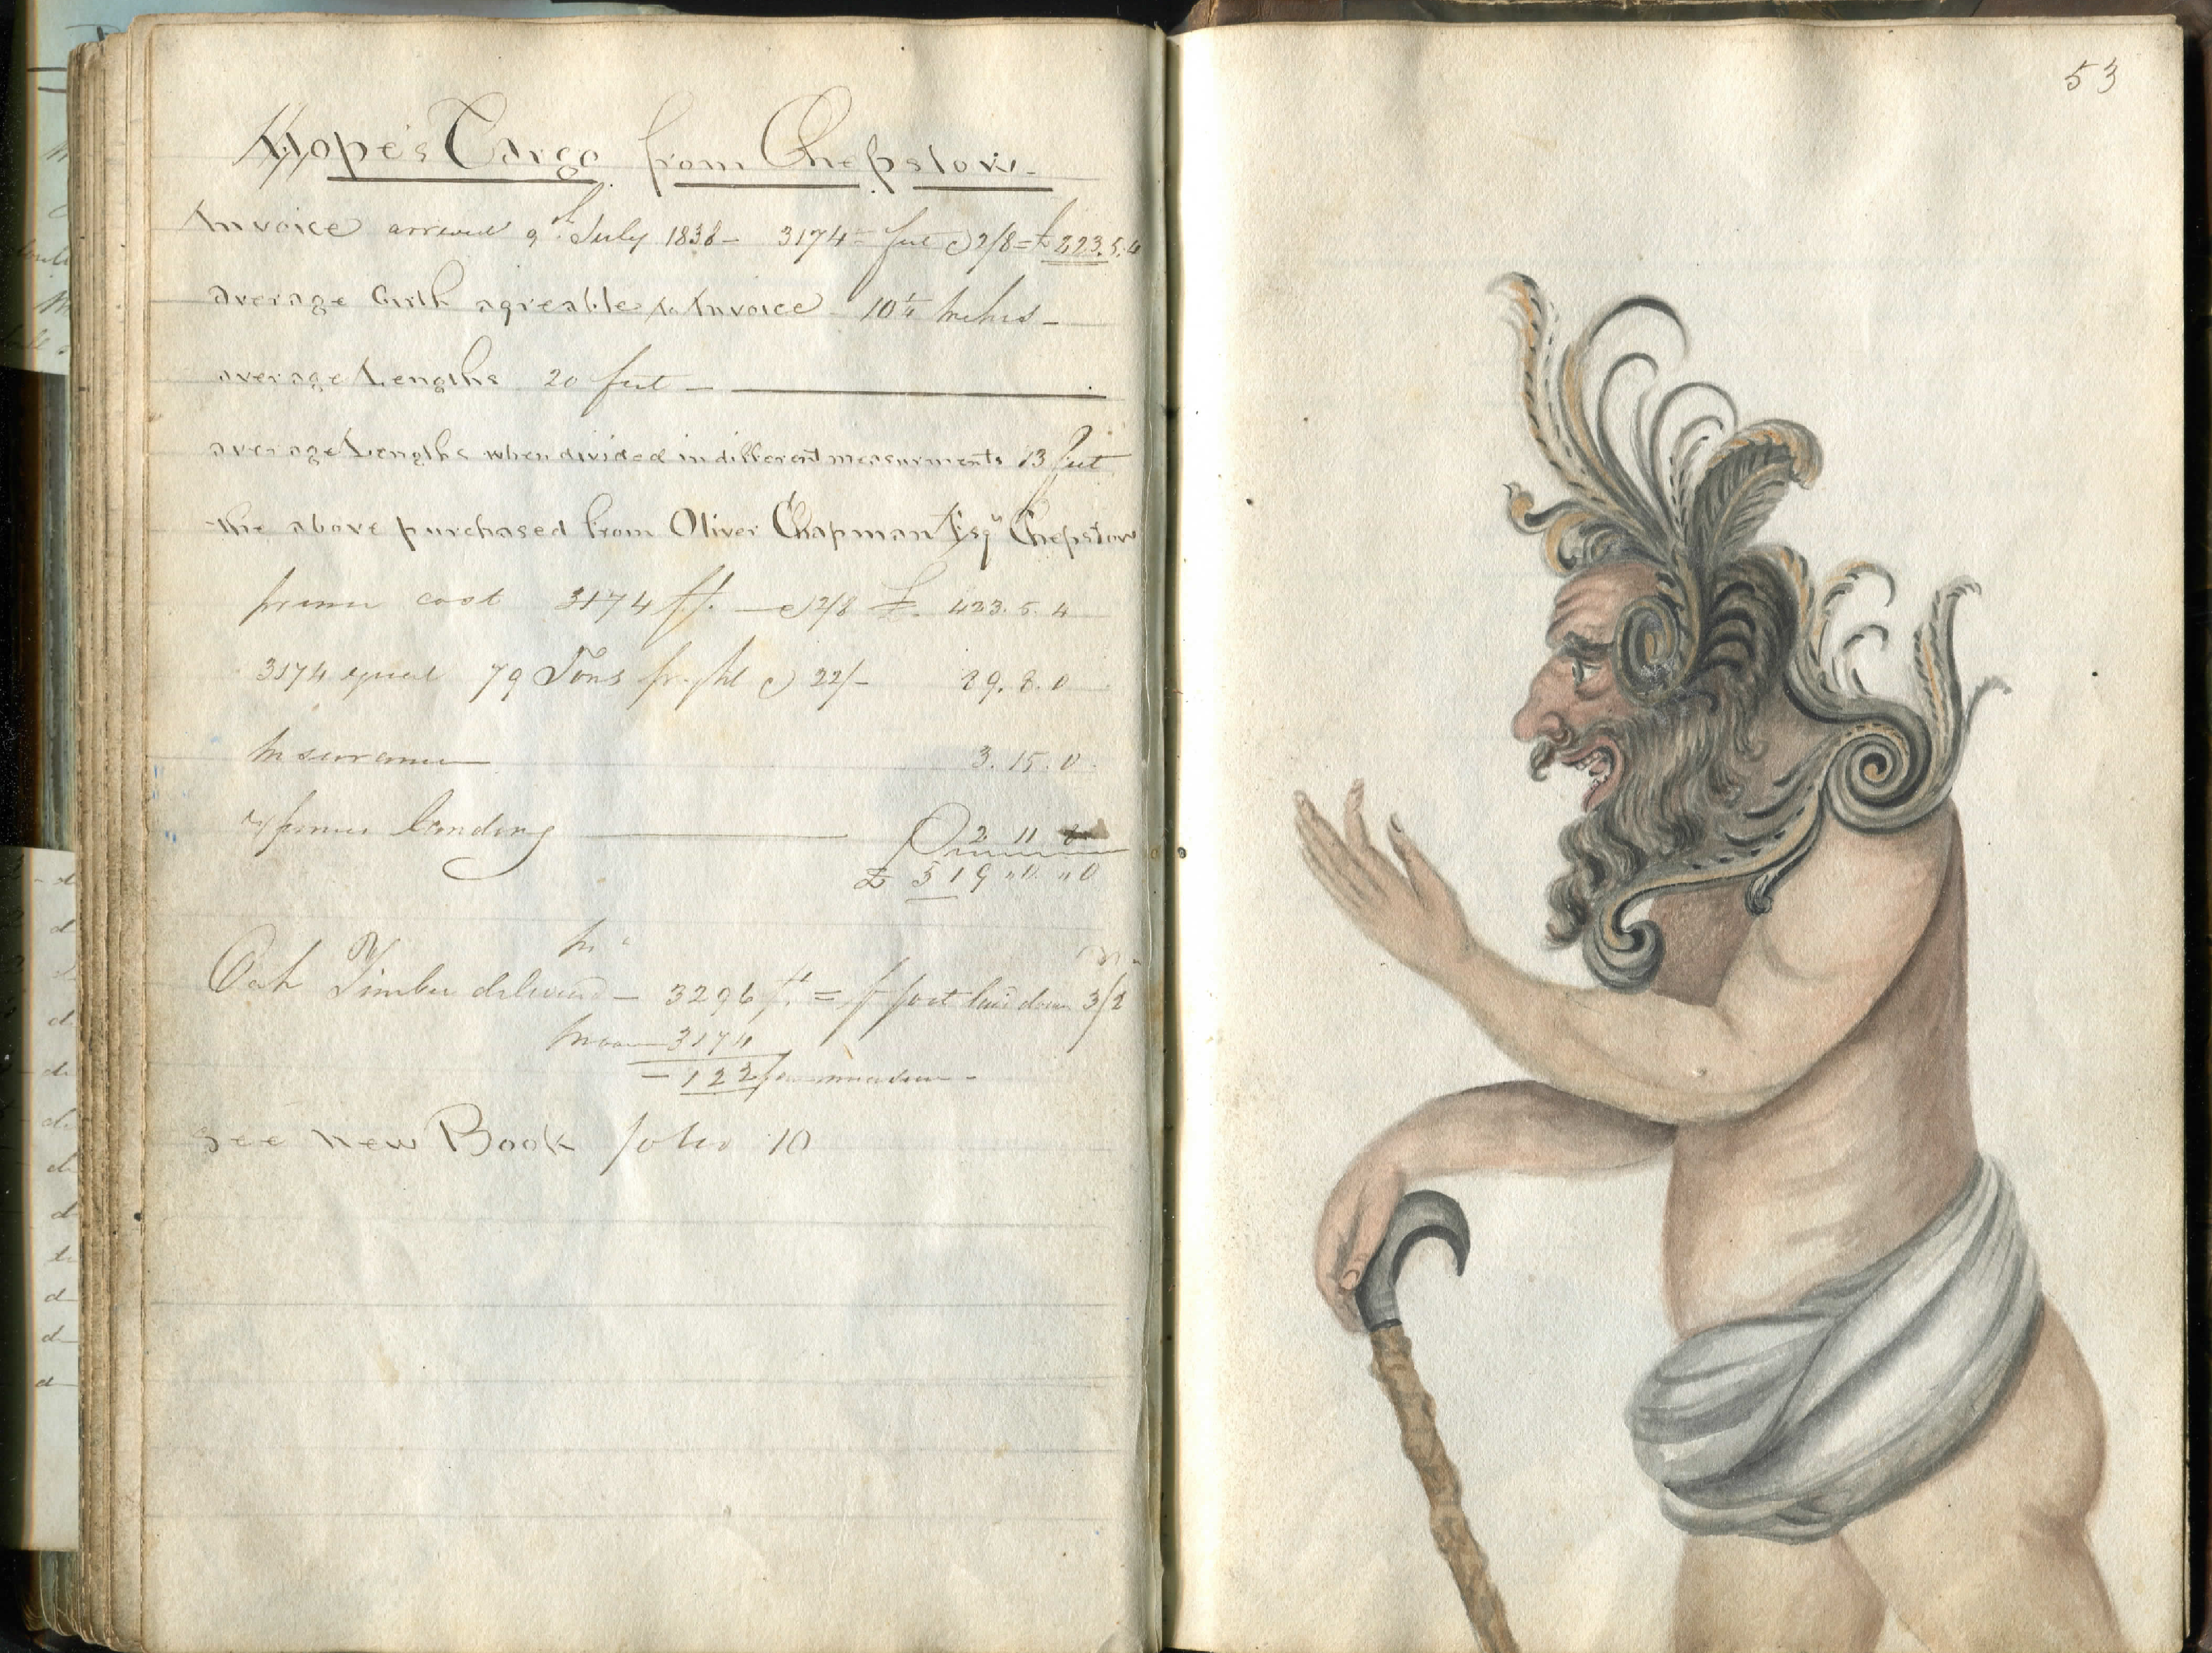 Hope's Cargo from Chepstow.
Invoice arrived 9th July 1838 - 3174 feet @ 2/8 = £423.5.4
average Girth agreable to Invoice - 10¼ Inches -
average Lengths 20 feet -
average Lengths when divided in different measurments 13 feet
the above purchased from Oliver Chapman Esqr Chepstow
prime cost 3174 ft. - @ 2/8 £. 423.5.4
3174 equal 79 Tons freight @ 22/- 89.8.0
Insurance 3.15.0
expenses landing 2 11 8
£ 519 " 0 " 0
Oak Timber delivered - 3296 ft. = foot laid down 3/2
3174
- 122 measure -
See New Book folio 10
53